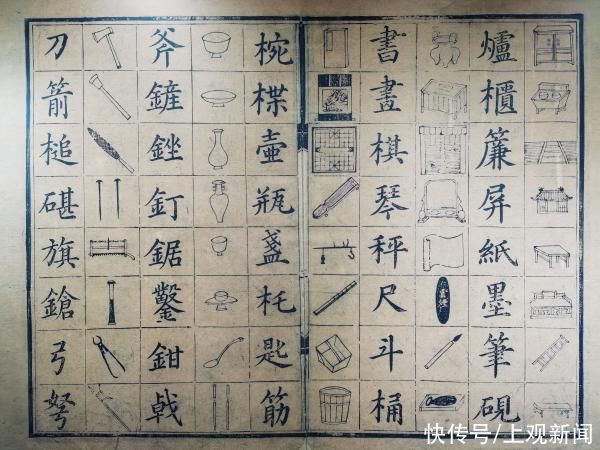 爐櫃簾屏紙墨筆硯
書畫棋琴秤尺斗桶
椀楪壺瓶盞杔匙筋
斧鏟銼釘鋸鑿鉗戟
刀箭槌碪旗鎗弓弩
快传号/上观新闻